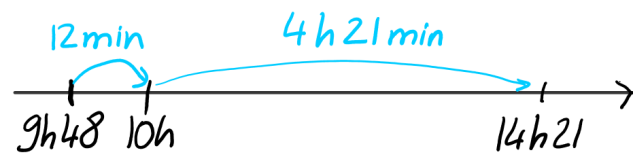 12min 4h21min
9h48 10h 14h21